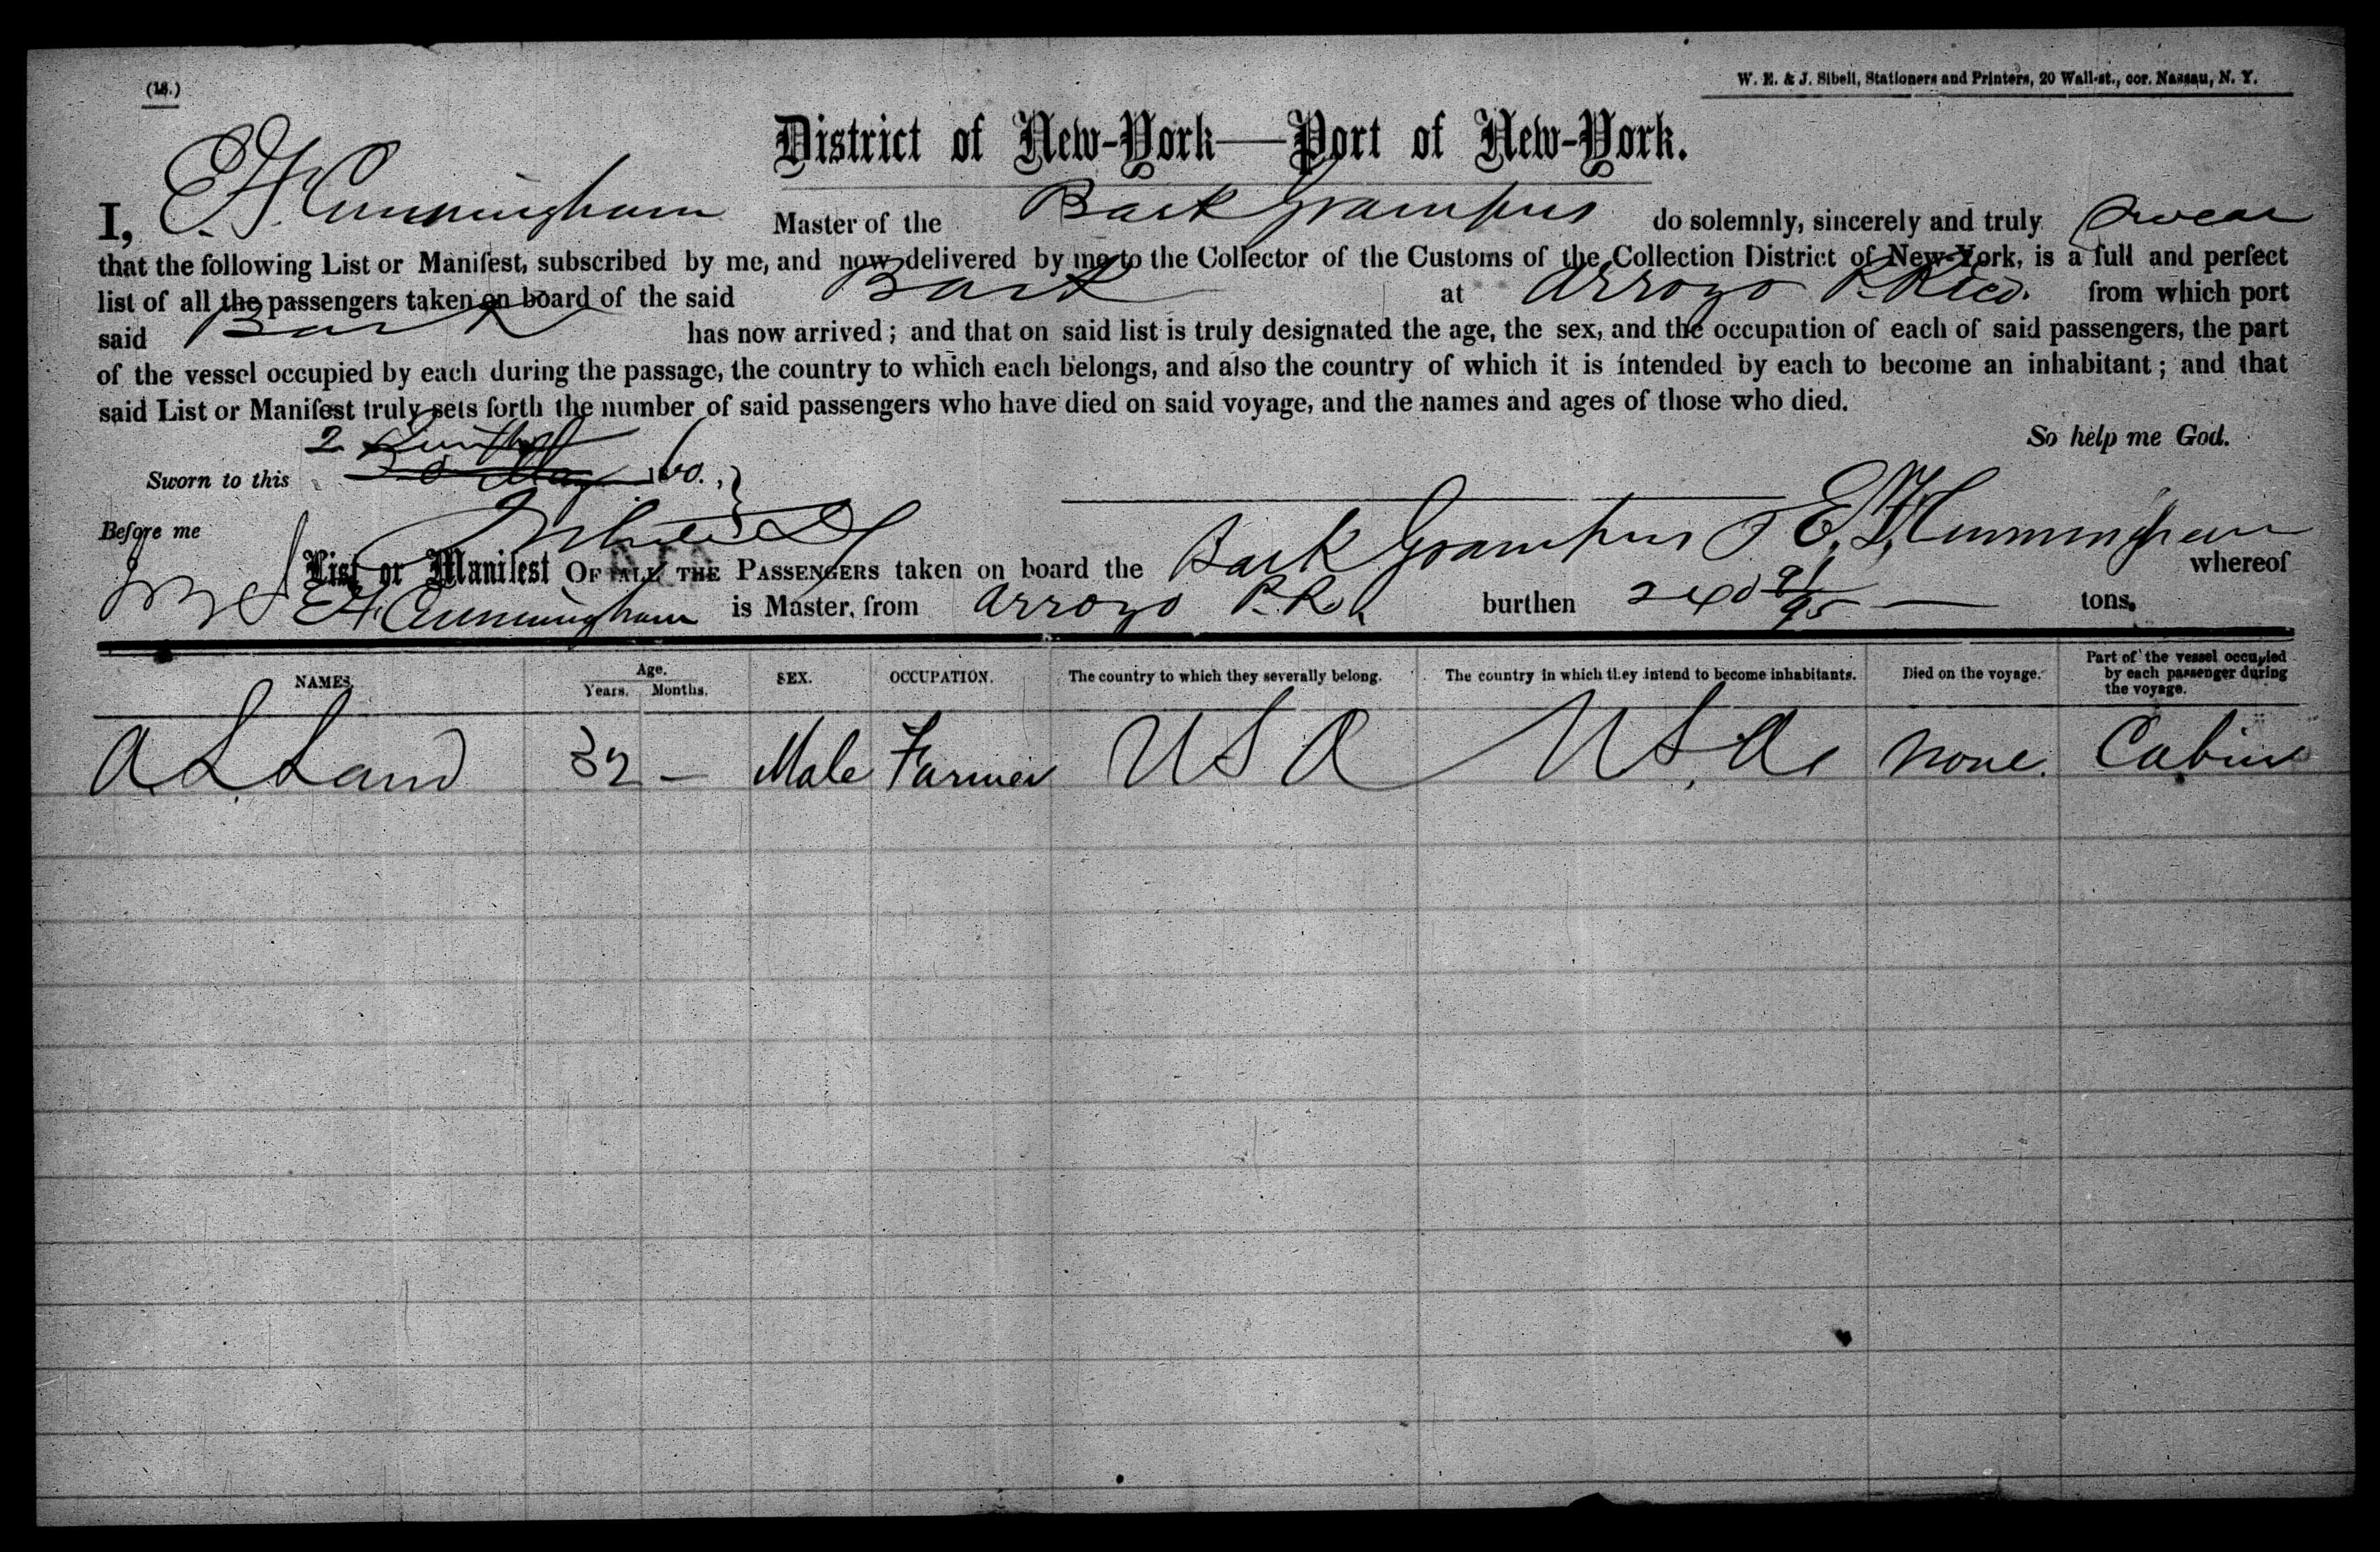 (18.)
W. E. & J. Sibell, Stationers and Printers, 20 Wall-st., cor. Nassau, N. Y.
District of New-York—Port of New-York.
I, E. H. Cunningham Master of the Bark Grampus do solemnly, sincerely and truly swear
that the following List or Manifest, subscribed by me, and now delivered by me to the Collector of the Customs of the Collection District of New-York, is a full and perfect
list of all the passengers taken on board of the said Bark at Arroyo P. Rico. from which port
said Bark has now arrived; and that on said list is truly designated the age, the sex, and the occupation of each of said passengers, the part
of the vessel occupied by each during the passage, the country to which each belongs, and also the country of which it is intended by each to become an inhabitant; and that
said List or Manifest truly sets forth the number of said passengers who have died on said voyage, and the names and ages of those who died.
So help me God.
2
Sworn to this 30 May 1860.,
Before me E. H. Cunningham
List or Manifest OF ALL THE PASSENGERS taken on board the Bark Grampus whereof
E H Cunningham is Master, from Arroyo P. R. burthen tons,
NAMES. Age. Years. Months. SEX. OCCUPATION. The country to which they severally belong. The country in which they intend to become inhabitants. Died on the voyage. Part of the vessel occupied by each passenger during the voyage.
A. L. Land 32 – Male Farmer U S A U S. A. None. Cabin